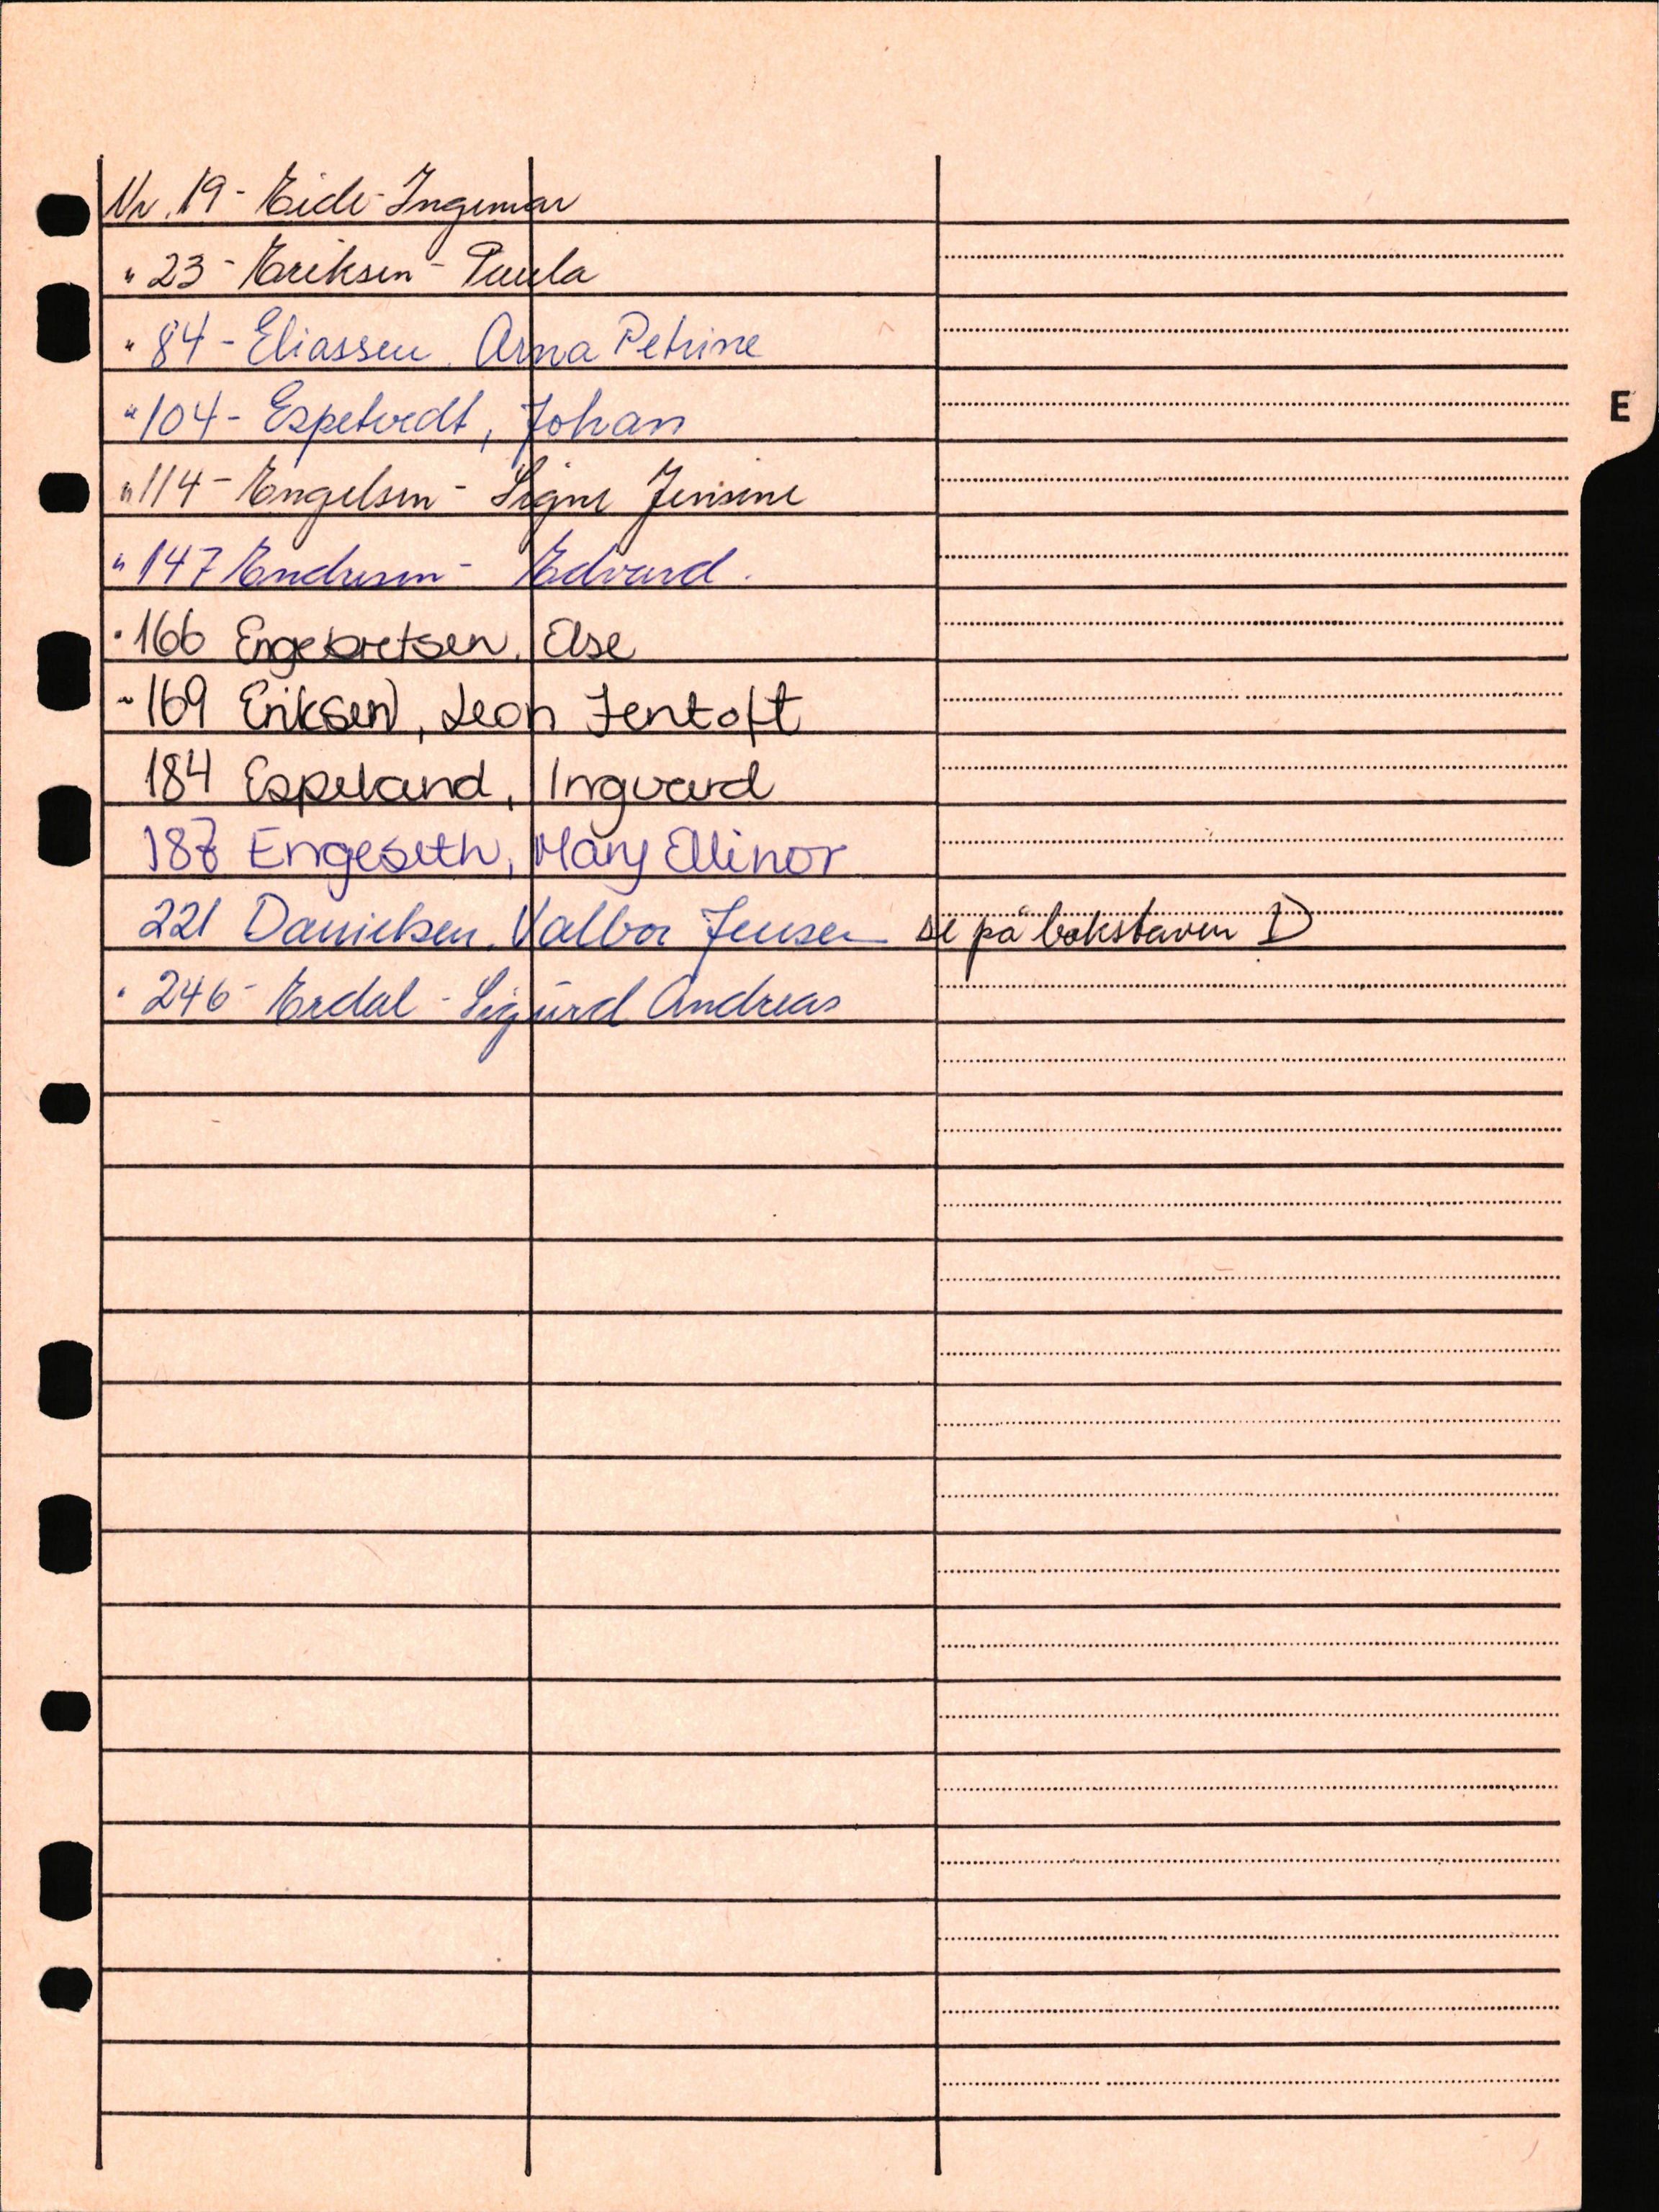 Nr. 19 - Eide - Ingemar
" 23 - Eriksen - Paula
" 84 - Eliassen. Arna Petrine
" 104 - Espetvedt, Johan
E
" 114 - Engelsen - Signe Jensine
" 147 Endresen - Edvard.
" 166 Engebretsen, Else
" 169 Eriksen, Leon Jentoft
184 Espeland, Ingvard
187 Engeseth, Mary Ellinor
221 Danielsen. Valbor Jensen se på bokstaven D
" 246 - Erdal - Sigurd Andreas